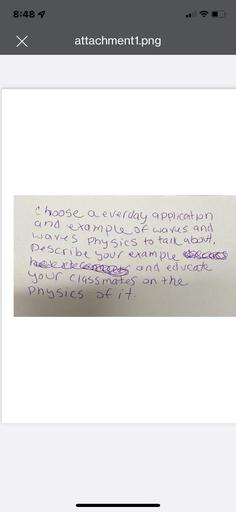 8:48
attachment1.png
Choose a everday application
and example of waves and
waves physics to talk about.
Describe your example
and educate
your classmates on the
physics of it.